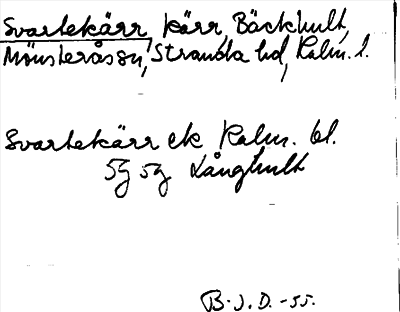 Svartekärr, kärr, Bäckhult,
Mönsterås sn, Stranda hd, Kalm. l.
Svartekärr ek Kalm. bl.
5g 5g Långhult
B.J.D. -55.